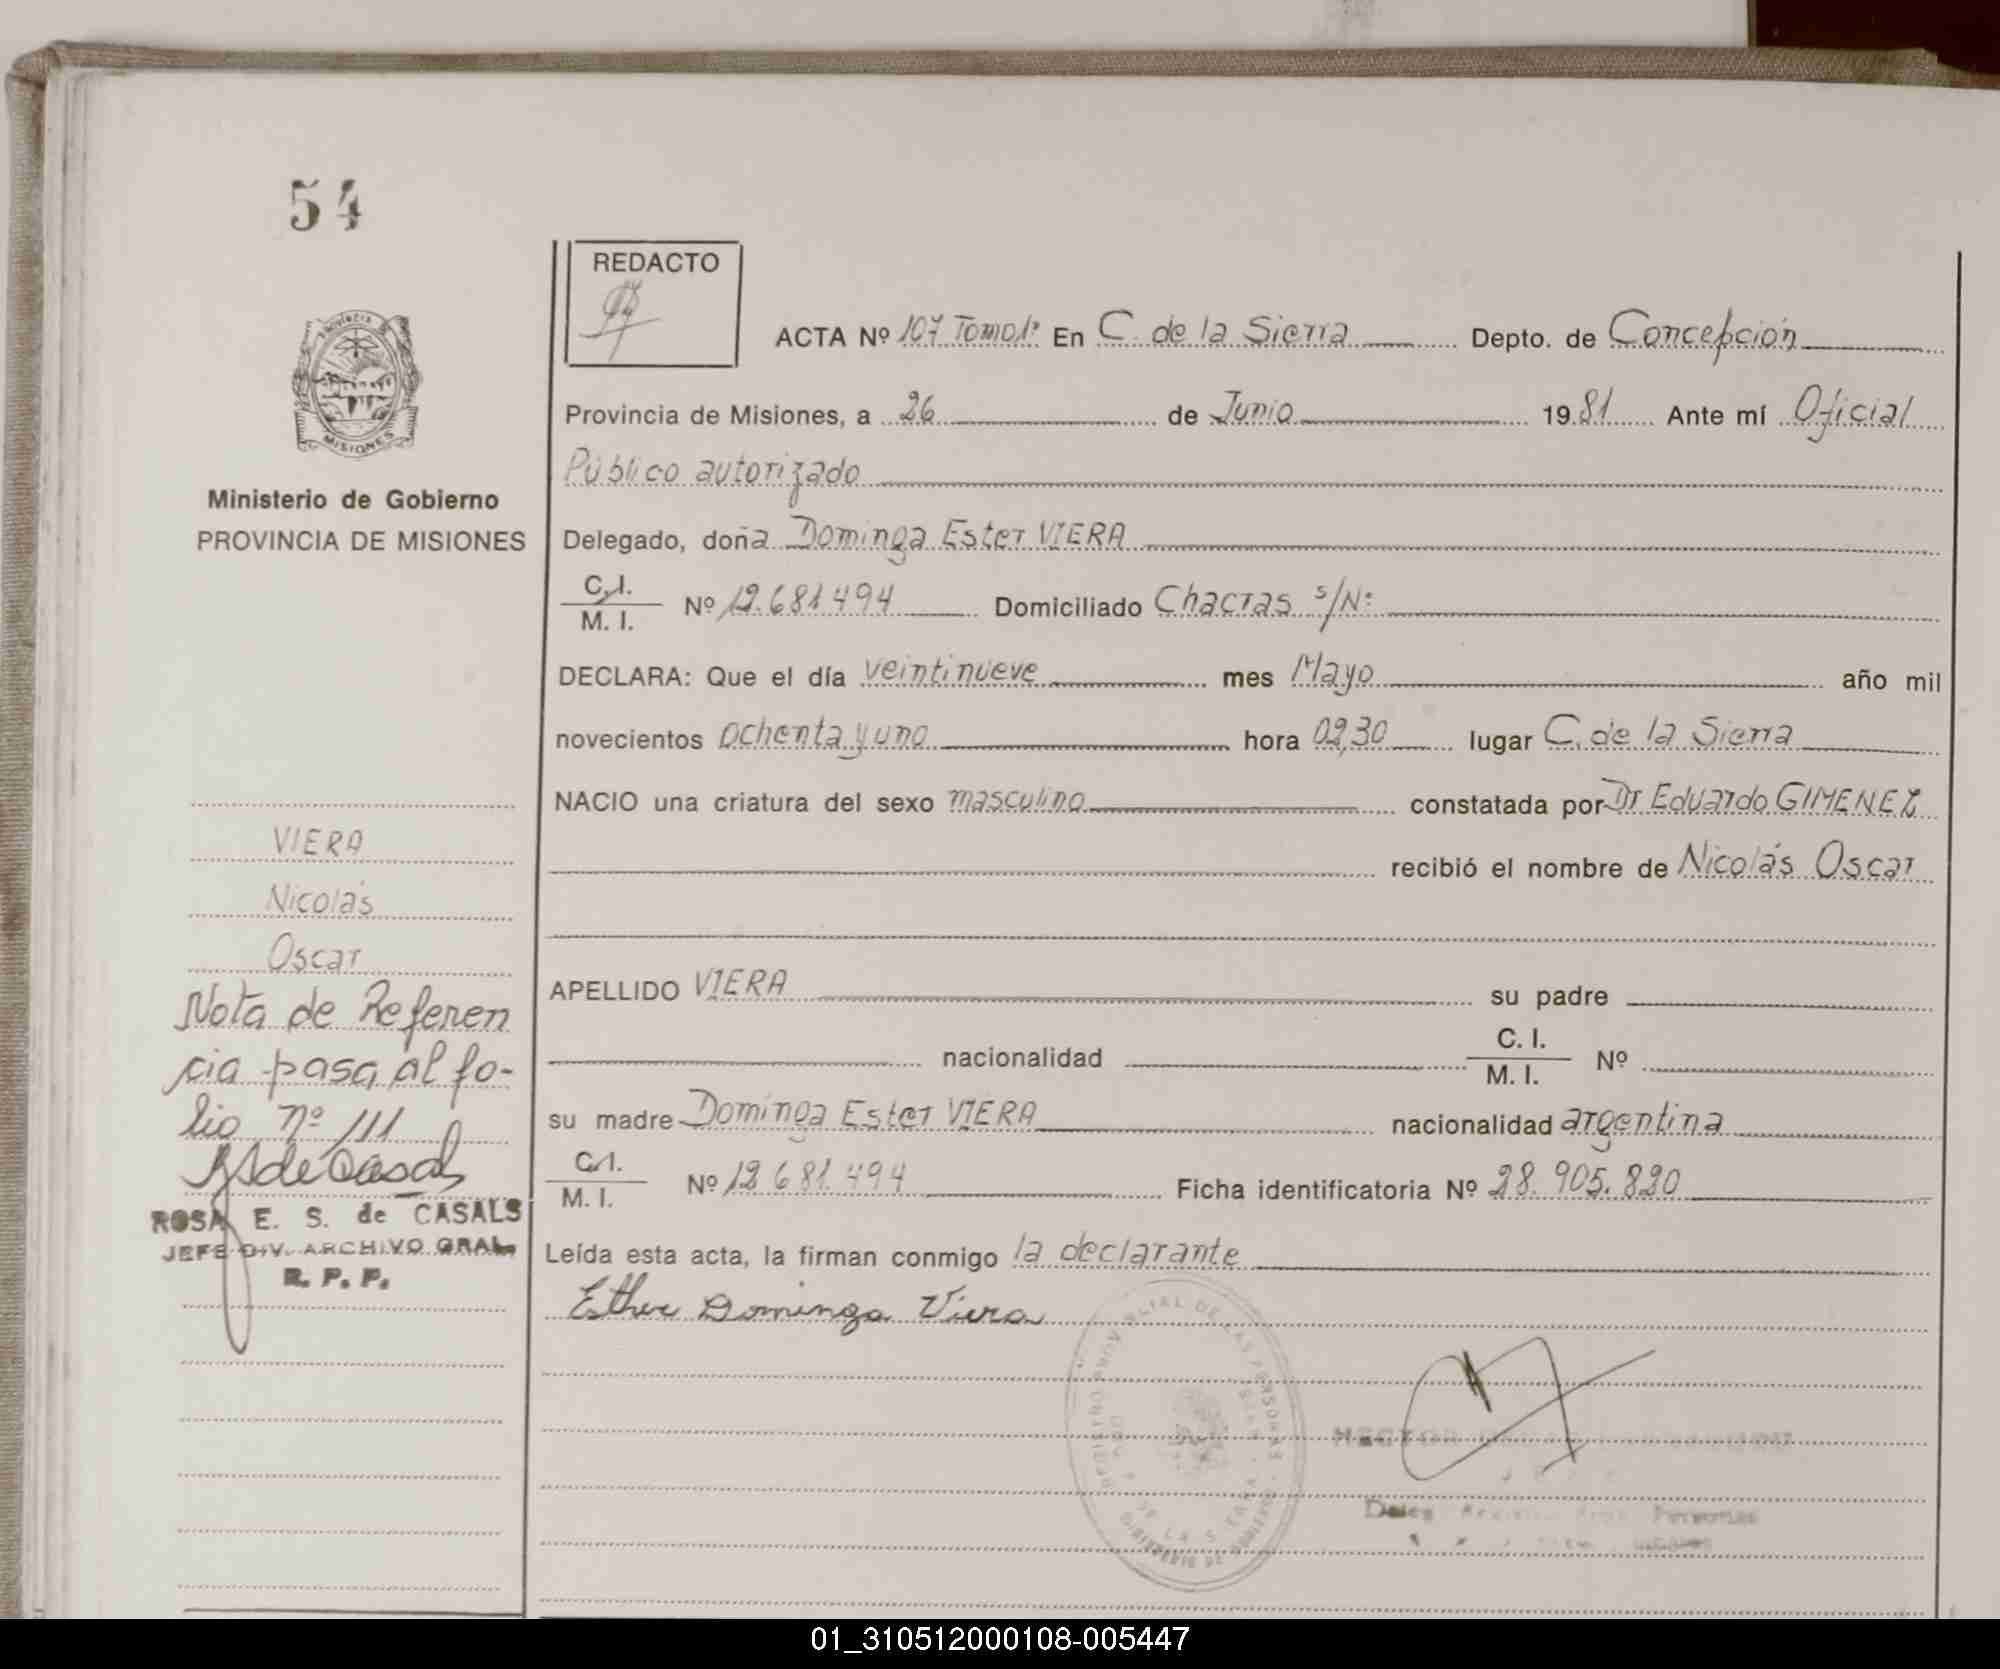 54
REDACTO
ACTA Nº 107 Tomo 1º En C. de la Sierra Depto. de Concepción
Provincia de Misiones, a 26 de Junio 1981 Ante mí Oficial
Público autorizado
PROVINCIA DE MISIONES
Ministerio de Gobierno
PROVINCIA DE MISIONES
Delegado, doña Dominga Ester VIERA
C.I.
M. I. Nº 12.681.494 Domiciliado Chacras s/Nº
DECLARA: Que el día veintinueve mes Mayo año mil
novecientos ochenta y uno hora 02,30 lugar C. de la Sierra
NACIO una criatura del sexo masculino constatada por Dr Eduardo GIMENEZ
recibió el nombre de Nicolás Oscar
APELLIDO VIERA su padre
nacionalidad C. I.
M. I. Nº
su madre Dominga Ester VIERA nacionalidad argentina
C.I.
M. I. Nº 12.681.494 Ficha identificatoria Nº 28.905.820
Leída esta acta, la firman conmigo la declarante
Esther Dominga Viera
VIERA
Nicolás
Oscar
Nota de Referen
cia pasa al fo-
lio nº 111
RSdeCasals
ROSA E. S. de CASALS
JEFE DIV. ARCHIVO GRAL.
R. P. P.
REGISTRO PROVINCIAL DE LAS PERSONAS
DE LA SIERRA
MINISTERIO DE GOBIERNO
HECTOR
Personas
01_310512000108-005447